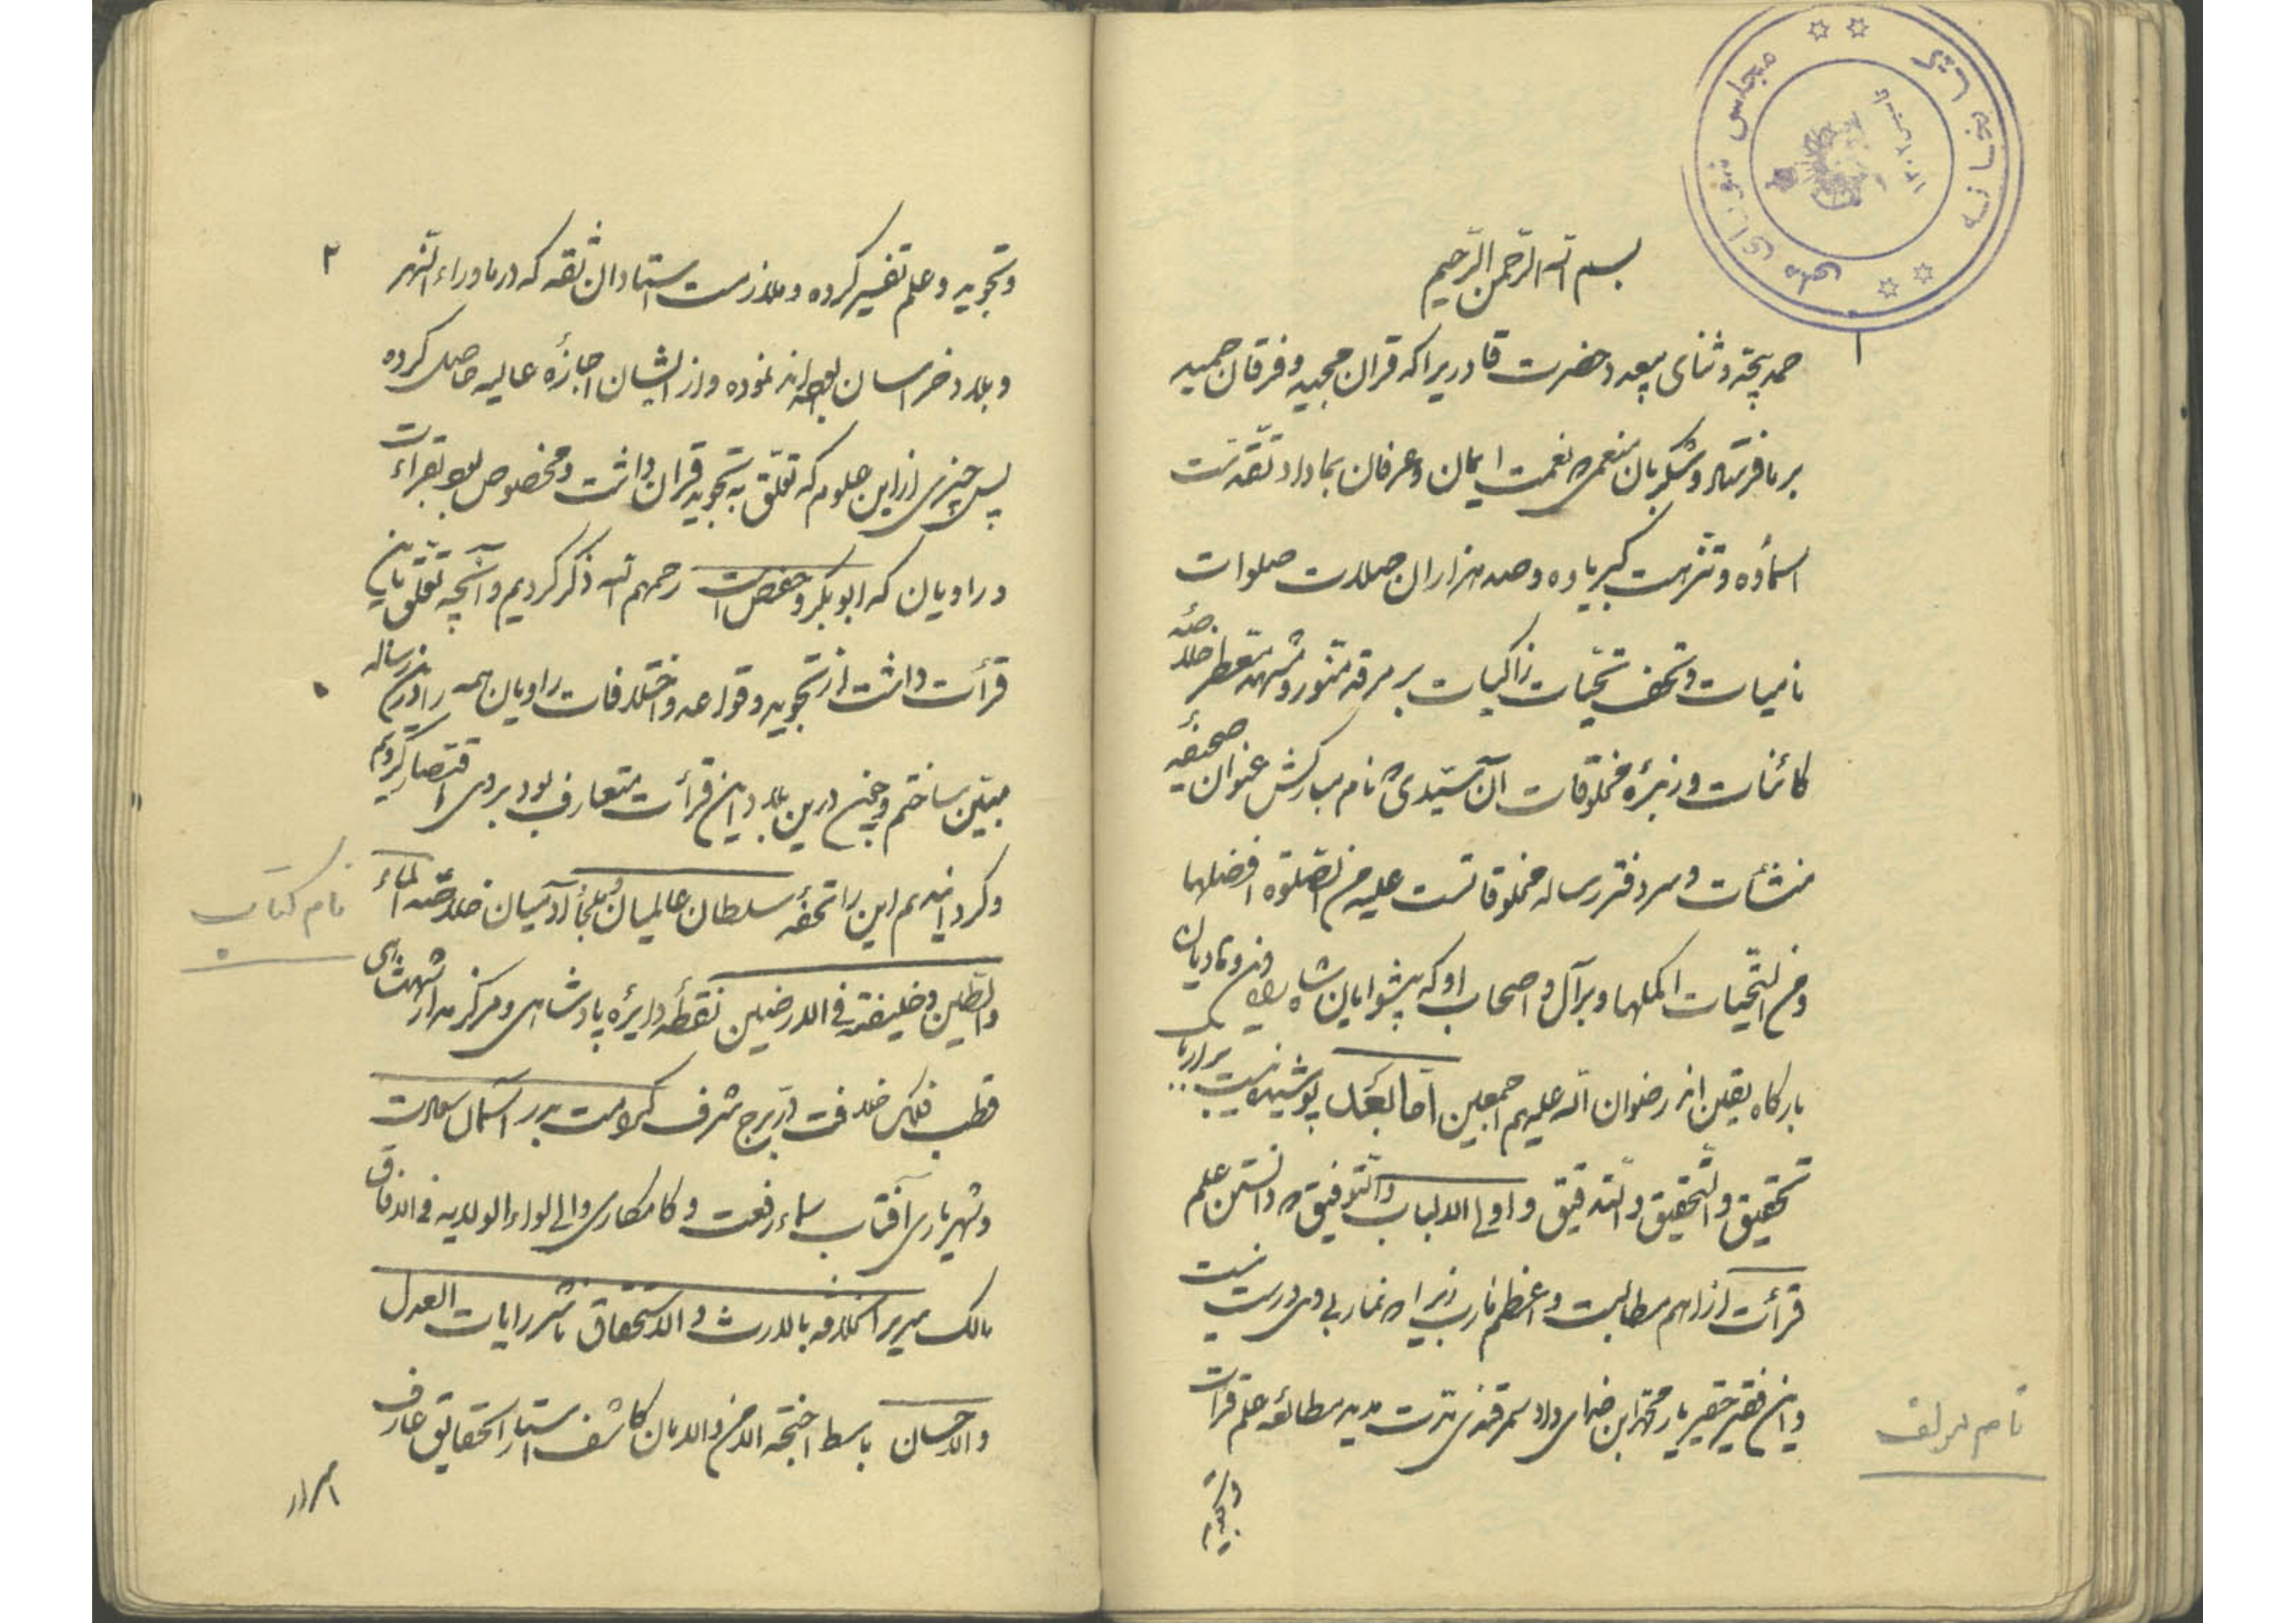 بسم الله الرحمن الرحیم
حمد بیحد و ثنای بیعد حضرت قادریرا که قران مجید و فرقان حمید
بر ما فرستاد و شکر بان منعمی که نعمت ایمان و عرفان بما داد تقدست
اسماؤه و تنزهت کبریاوه و صد هزاران صلات صلوات
نامیات و تحف تحیّات زاکیات بر مرقد منور و مشهد معطر خلاصه
کائنات و زبدۀ مخلوقات آن سیّدی که نام مبارکش عنوان صحیفه
منشأت و سر دفتر رساله مخلوقاتست علیه من الصلوة افضلها
و من التحیات اکملها و بر آل و اصحاب او که پیشوایان شاه راه دین و هادیان
بارگاه یقین اند رضوان الله علیهم اجمعین اما بعد پوشیده نیست بر ارباب
تحقیق والتحقیق والتدقیق و اولی الالباب والتوفیق که دانستن علم
قرأت از اهم مطالبست و اعظم مآرب زیرا که نماز بی وی درست نیست
و این فقیر حقیر یار محمد ابن خدای داد سمرقندی مدت مدید مطالعه علم قرات
و تجوید
نام مولف
مجلس شورای ملی
کتابخانه
تاسیس ۱۳۰۲
۱
۲
و تجوید و علم تفسیر کرده و ملازمت استادان ثقه که در ماوراء النهر
و بلاد خراسان بوده‌اند نموده و از ایشان اجازۀ عالیه حاصل کرده
پس چیزی از این علوم که تعلّق به تجوید قران داشت و مخصوص بود بقراءت
و راویان که ابو بکر و حفص است رحمهم الله ذکر کردیم و آنچه تعلّق باین
قرأت داشت از تجوید و قواعد و اختلافات راویان همه را درین رساله
مبیّن ساختم و چون درین بلاد این قرأت متعارف بود بر وی اقتصار کردیم
و کردانیدیم این را تحفه سلطان عالمیان و ملجأ آدمیان خلاصة الماء
والطین و خلیفته فی الارضین نقطۀ دایرۀ پادشاهی و مرکز مدار شهنشاهی
قطب فلک خلافت درّ برج شرف کرامت بدر آسمان سعادت
و شهریاری آفتاب سماء رفعت و کامکاری والی لواء الولایه فی الافاق
مالک سریر الخلافه بالارث والاستحقاق ناشر رایات العدل
والاحسان باسط اجنحة الامن والامان کاشف استار الحقایق عارف
اسرار
نام کتاب